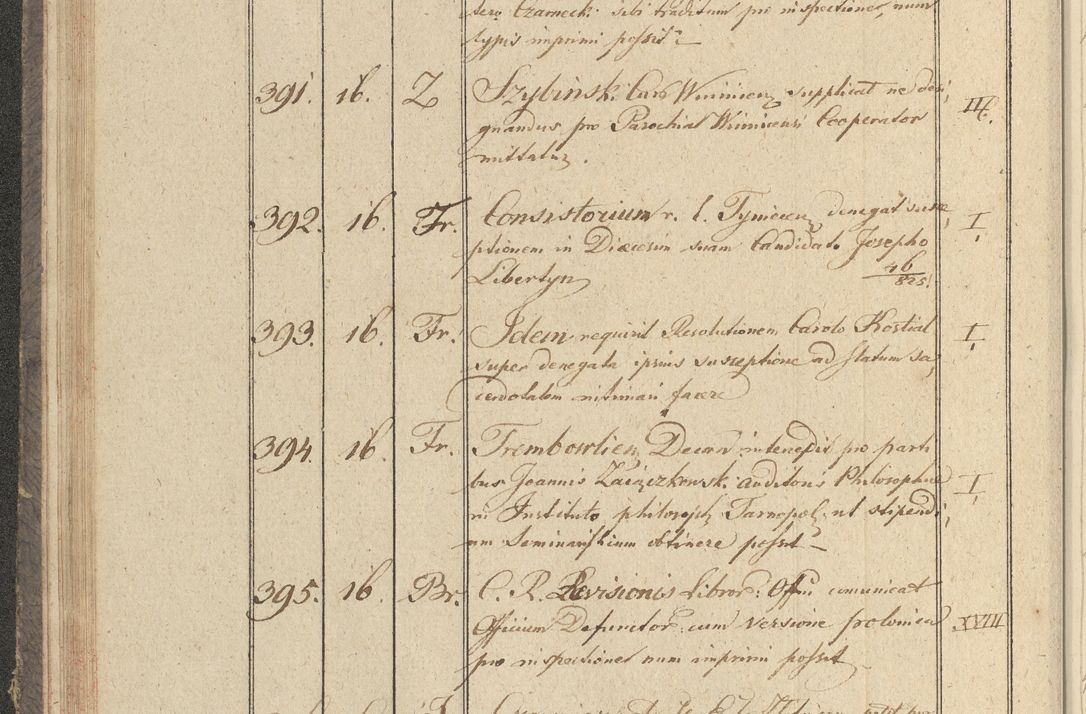 Czarnecki sibi traditum pro inspectione, num
typis imprimi possit?
391. 16. Z Szybinsk. Car. Winnicen. supplicat ne desi, III.
gnandus pro Parochial Winnicensi Cooperator
mittatur.
392. 16. Fr. Consistorium r. l. Tyniecen. denegat susce, I.
ptionem in Diœcesim suam Candidato Josepho
Libertyn 46/825.
393. 16. Fr. Idem requirit Resolutionem Carolo Kostial I.
super denegata ipsius susceptione ad statum sa,
cerdotalem intimari facere
394. 16. Fr. Trembowlien. Decan intercedit pro parti
bus Joannis Zaiączkowsk. auditoris Philosophiæ I.
in Instituto philosoph. Tarnopol. ut stipendi,
um Seminaristicum obtinere possit
395. 16. Br. C. R. Revisionis Libror. Offiu comunicat
Officium Defunctor. cum versione polonica XVIII
pro inspectione num imprimi possit